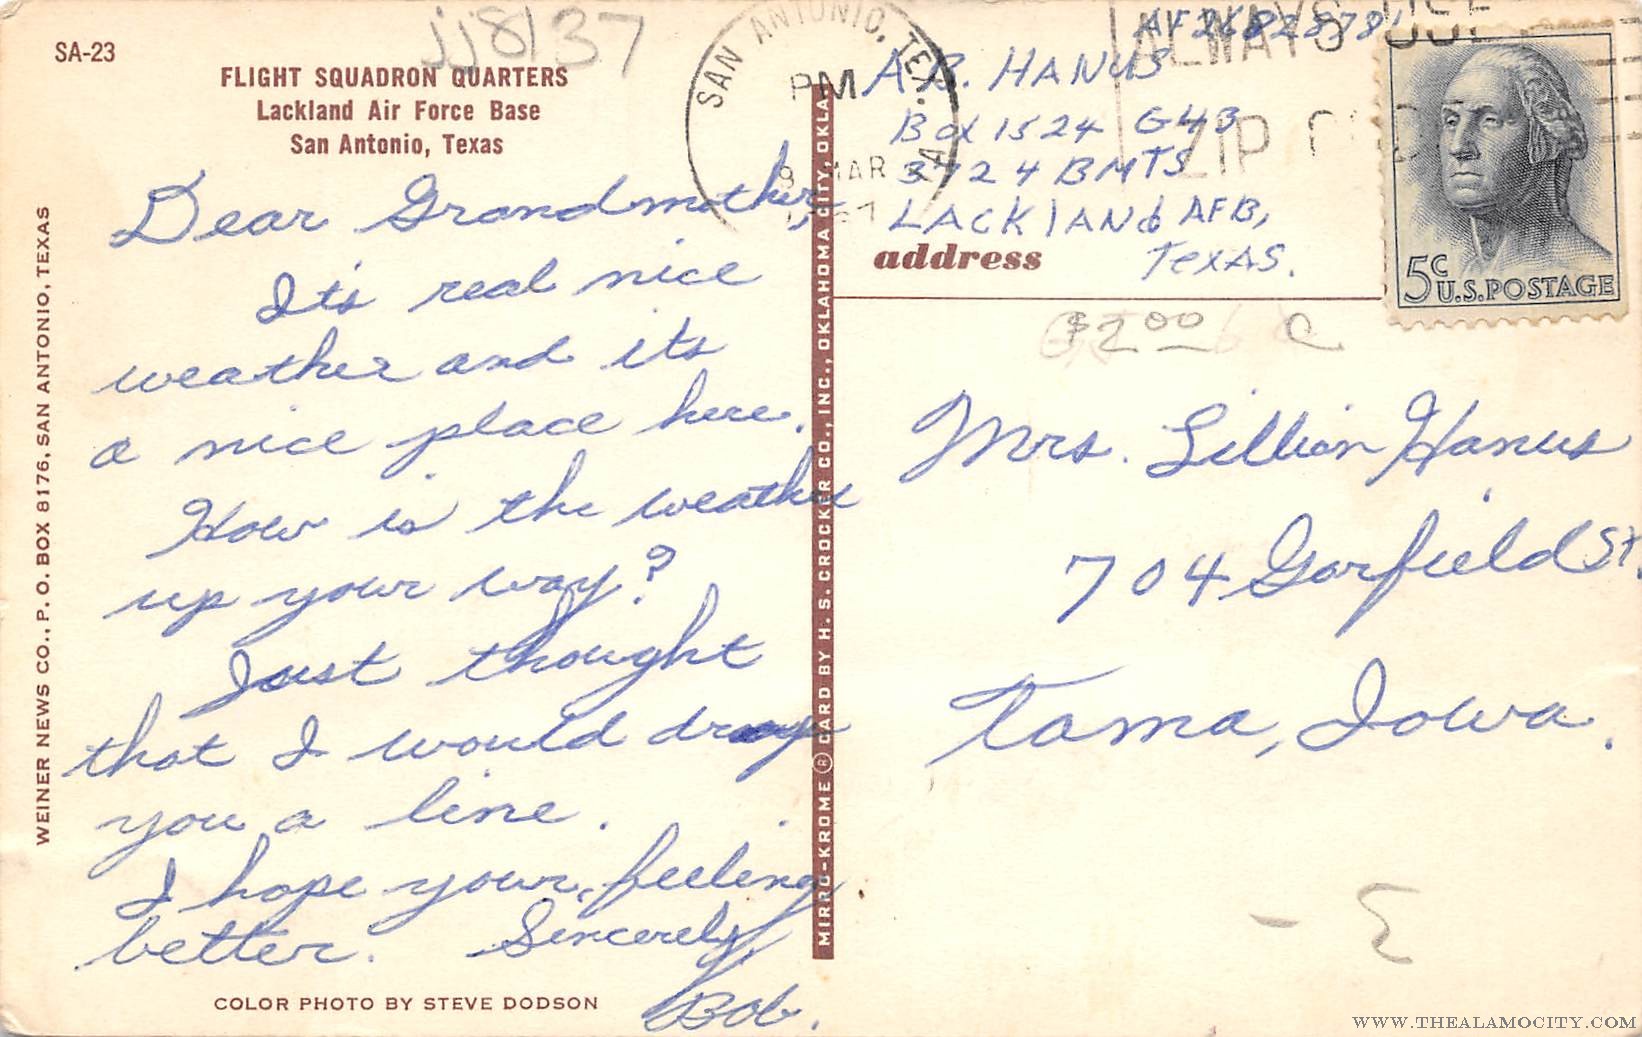 SA-23
jj8137
FLIGHT SQUADRON QUARTERS
Lackland Air Force Base
San Antonio, Texas
Dear Grandmother,
It's real nice
weather and its
a nice place here.
How is the weather
up your way?
Just thought
that I would drop
you a line.
I hope your feeling
better. Sincerely,
Bob.
COLOR PHOTO BY STEVE DODSON
WEINER NEWS CO., P. O. BOX 8176, SAN ANTONIO, TEXAS
MIRRO-KROME ® CARD BY H. S. CROCKER CO., INC., OKLAHOMA CITY, OKLA.
SAN ANTONIO, TEX.
PM
MAR
ALWAYS USE
ZIP CODE
AF26828781
A.B. HANUS
Box 1524 G43
3724 BMTS
LACKLAND AFB,
TEXAS.
address
5c
U.S. POSTAGE
$2.00 C
Mrs. Lillian Hanus
704 Garfield St.
Tama, Iowa.
- E
WWW.THEALAMOCITY.COM